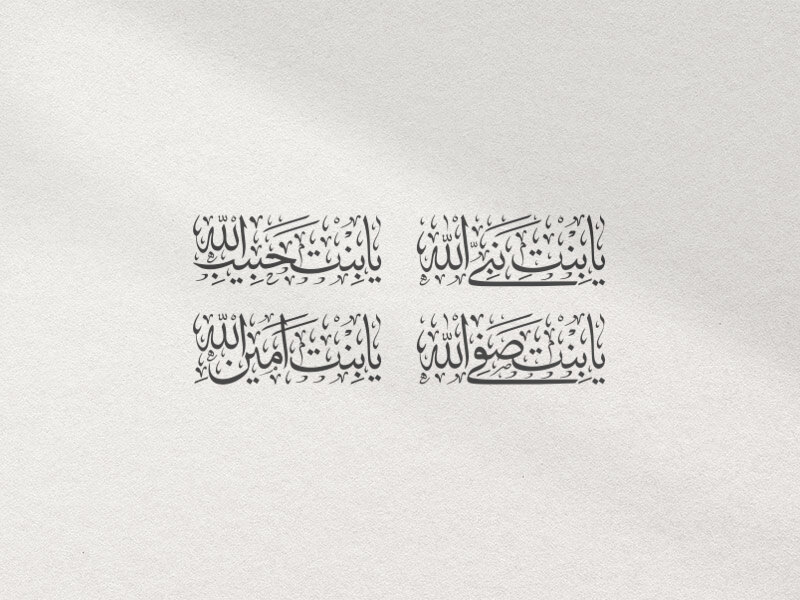 يا بنت نبي الله
يا بنت حبيب الله
يا بنت صفي الله
يا بنت أمين الله